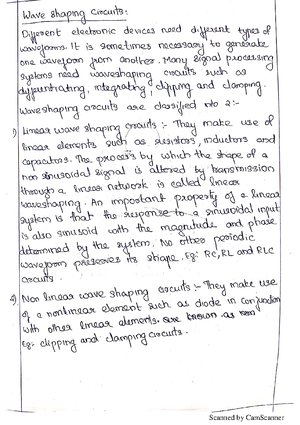 Wave Shaping Circuits:
Different electronic devices need different types of
waveforms. It is sometimes necessary to generate
one waveform from another. Many signal processing
systems need waveshaping circuits such as
differentiating, integrating, clipping and clamping.
Waveshaping circuits are classified into 2:-
1) Linear wave shaping circuits :- They make use of
linear elements such as resistors, inductors and
capacitors. The process by which the shape of a
non sinusoidal signal is altered by transmission
through a linear network is called linear
waveshaping. An important property of a linear
system is that the response to a sinusoidal input
is also sinusoid with the magnitude and phase
determined by the system. No other periodic
waveform preserves its shape. Eg: RC, RL and RLC
circuits.
2) Non linear wave shaping circuits :- They make use
of a nonlinear element such as diode in conjunction
with other linear elements. are known as
Eg:- clipping and clamping circuits.
Scanned by CamScanner